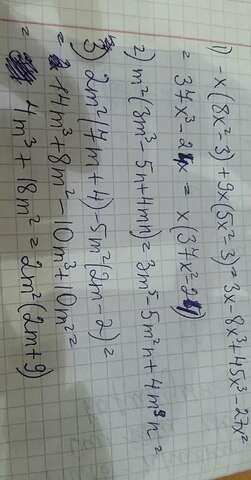 1) -x(8x²-3)+9x(5x²-3)=3x-8x³+45x³-27x²
= 37x³-24x = x(37x²-24)
2) m²(3m³-5n+4mn)=3m⁵-5m²n+4m³n=
3) 2m²(7m+4)-5m²(2m-2)=
= 14m³+8m²-10m³+10m²=
= 4m³+18m²=2m²(2m+9)